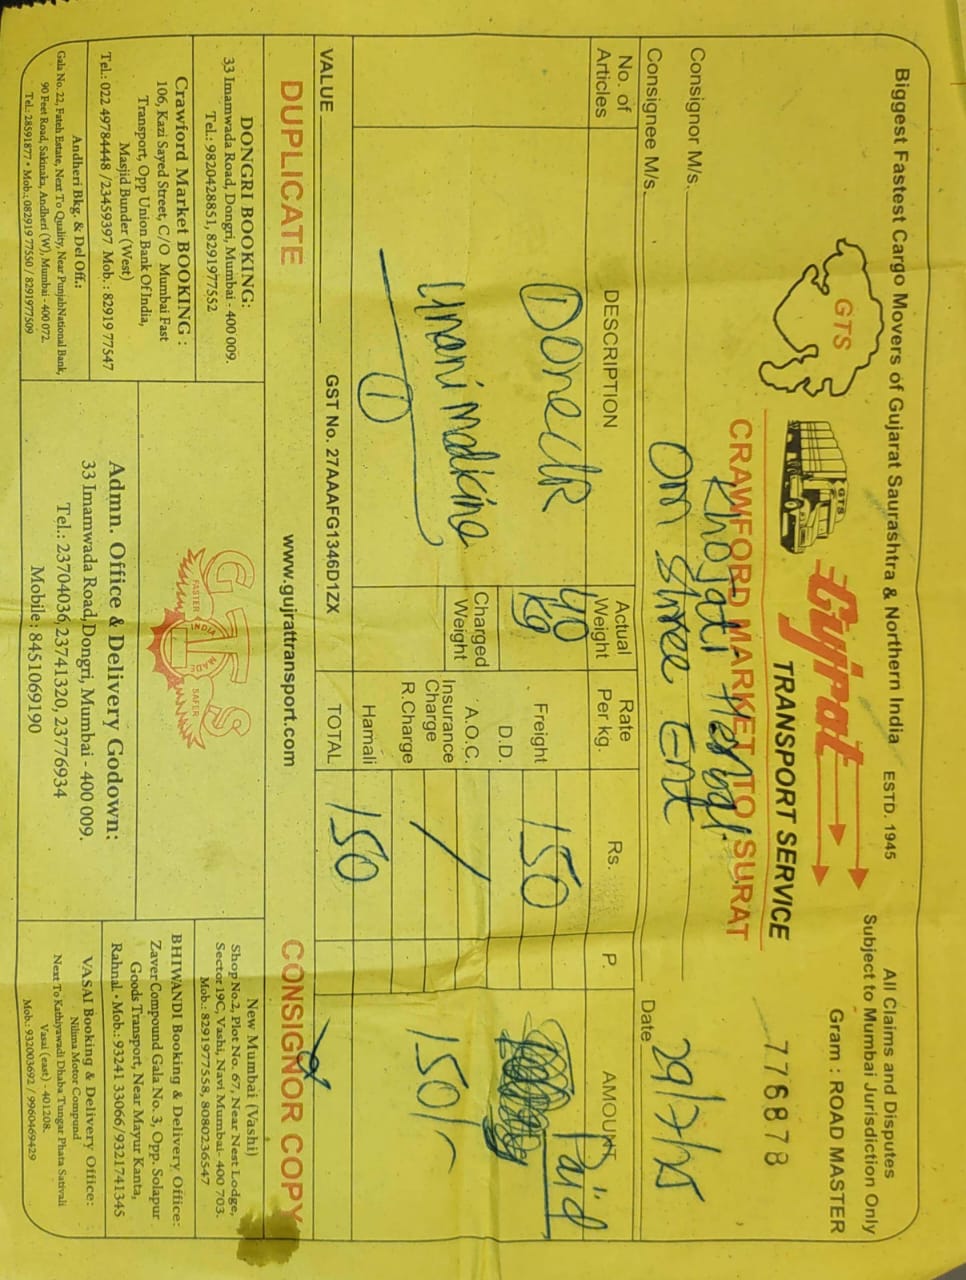 Biggest Fastest Cargo Movers of Gujarat Saurashtra & Northern India ESTD. 1945
All Claims and Disputes
Subject to Mumbai Jurisdiction Only
Gram : ROAD MASTER
GTS
GTS
Gujrat
TRANSPORT SERVICE
776878
CRAWFORD MARKET TO SURAT
Consignor M/s. Khojati Herbal
Consignee M/s. Om Shree Ent
Date 29/7/25
No. of Articles
DESCRIPTION
Actual Weight
Rate Per kg.
Rs.
P.
AMOUNT
① One CTR
40 kg
Freight
150
Paid
D.D.
Unani madicine
Charged Weight
A.O.C.
Insurance Charge
R.Charge
150/-
①
Hamali
TOTAL
150
VALUE
GST No. 27AAAFG1346D1ZX
DUPLICATE
www.gujrattransport.com
CONSIGNOR COPY
DONGRI BOOKING:
33 Imamwada Road, Dongri, Mumbai - 400 009.
Tel.: 9820428851, 8291977552
Crawford Market BOOKING :
106, Kazi Sayed Street, C/O Mumbai Fast
Transport, Opp Union Bank Of India,
Masjid Bunder (West)
Tel.: 022 49784448 /23459397 Mob. : 82919 77547
Andheri Bkg. & Del Off.:
Gala No. 22, Fateh Estate, Next To Quality, Near PunjabNational Bank,
90 Feet Road, Sakinaka, Andheri (W), Mumbai - 400 072.
Tel.: 28591877 • Mob.: 082919 77550 / 8291977509
GTS
FASTER INDIA SAFER
MADE
Admn. Office & Delivery Godown:
33 Imamwada Road,Dongri, Mumbai - 400 009.
Tel.: 23704036,23741320, 23776934
Mobile : 8451069190
New Mumbai (Vashi)
Shop No.2, Plot No. 67, Near Nest Lodge,
Sector 19C, Vashi, Navi Mumbai- 400 703.
Mob.: 8291977558, 8080236547
BHIWANDI Booking & Delivery Office:
Zaver Compound Gala No. 3, Opp. Solapur
Goods Transport, Near Mayur Kanta,
Rahnal • Mob.: 93241 33066/9321741345
VASAI Booking & Delivery Office:
Nilima Motor Compund
Next To Kathiyawadi Dhaba Tungar Phata Sativali
Vasai (east) - 401208.
Mob.: 932003692 / 9960469429